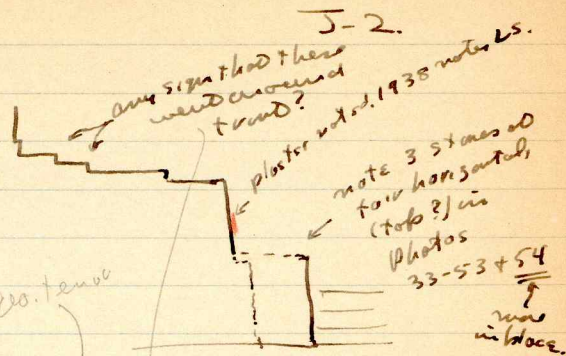 J-2.
any sign that these
went around
front?
plaster noted. 1938 notes LS.
note 3 stones at
fair horizontal,
(top?) in
photos
33-53 + 54
more
in place.